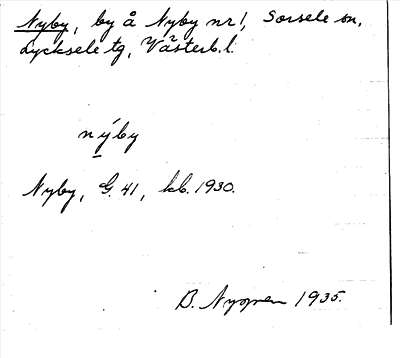 Nyby, by å Nyby nr 1, Sorsele sn,
Lycksele tg, Västerb. l.
nýby
Nyby, G. 41, kb. 1930.
B. 1935.